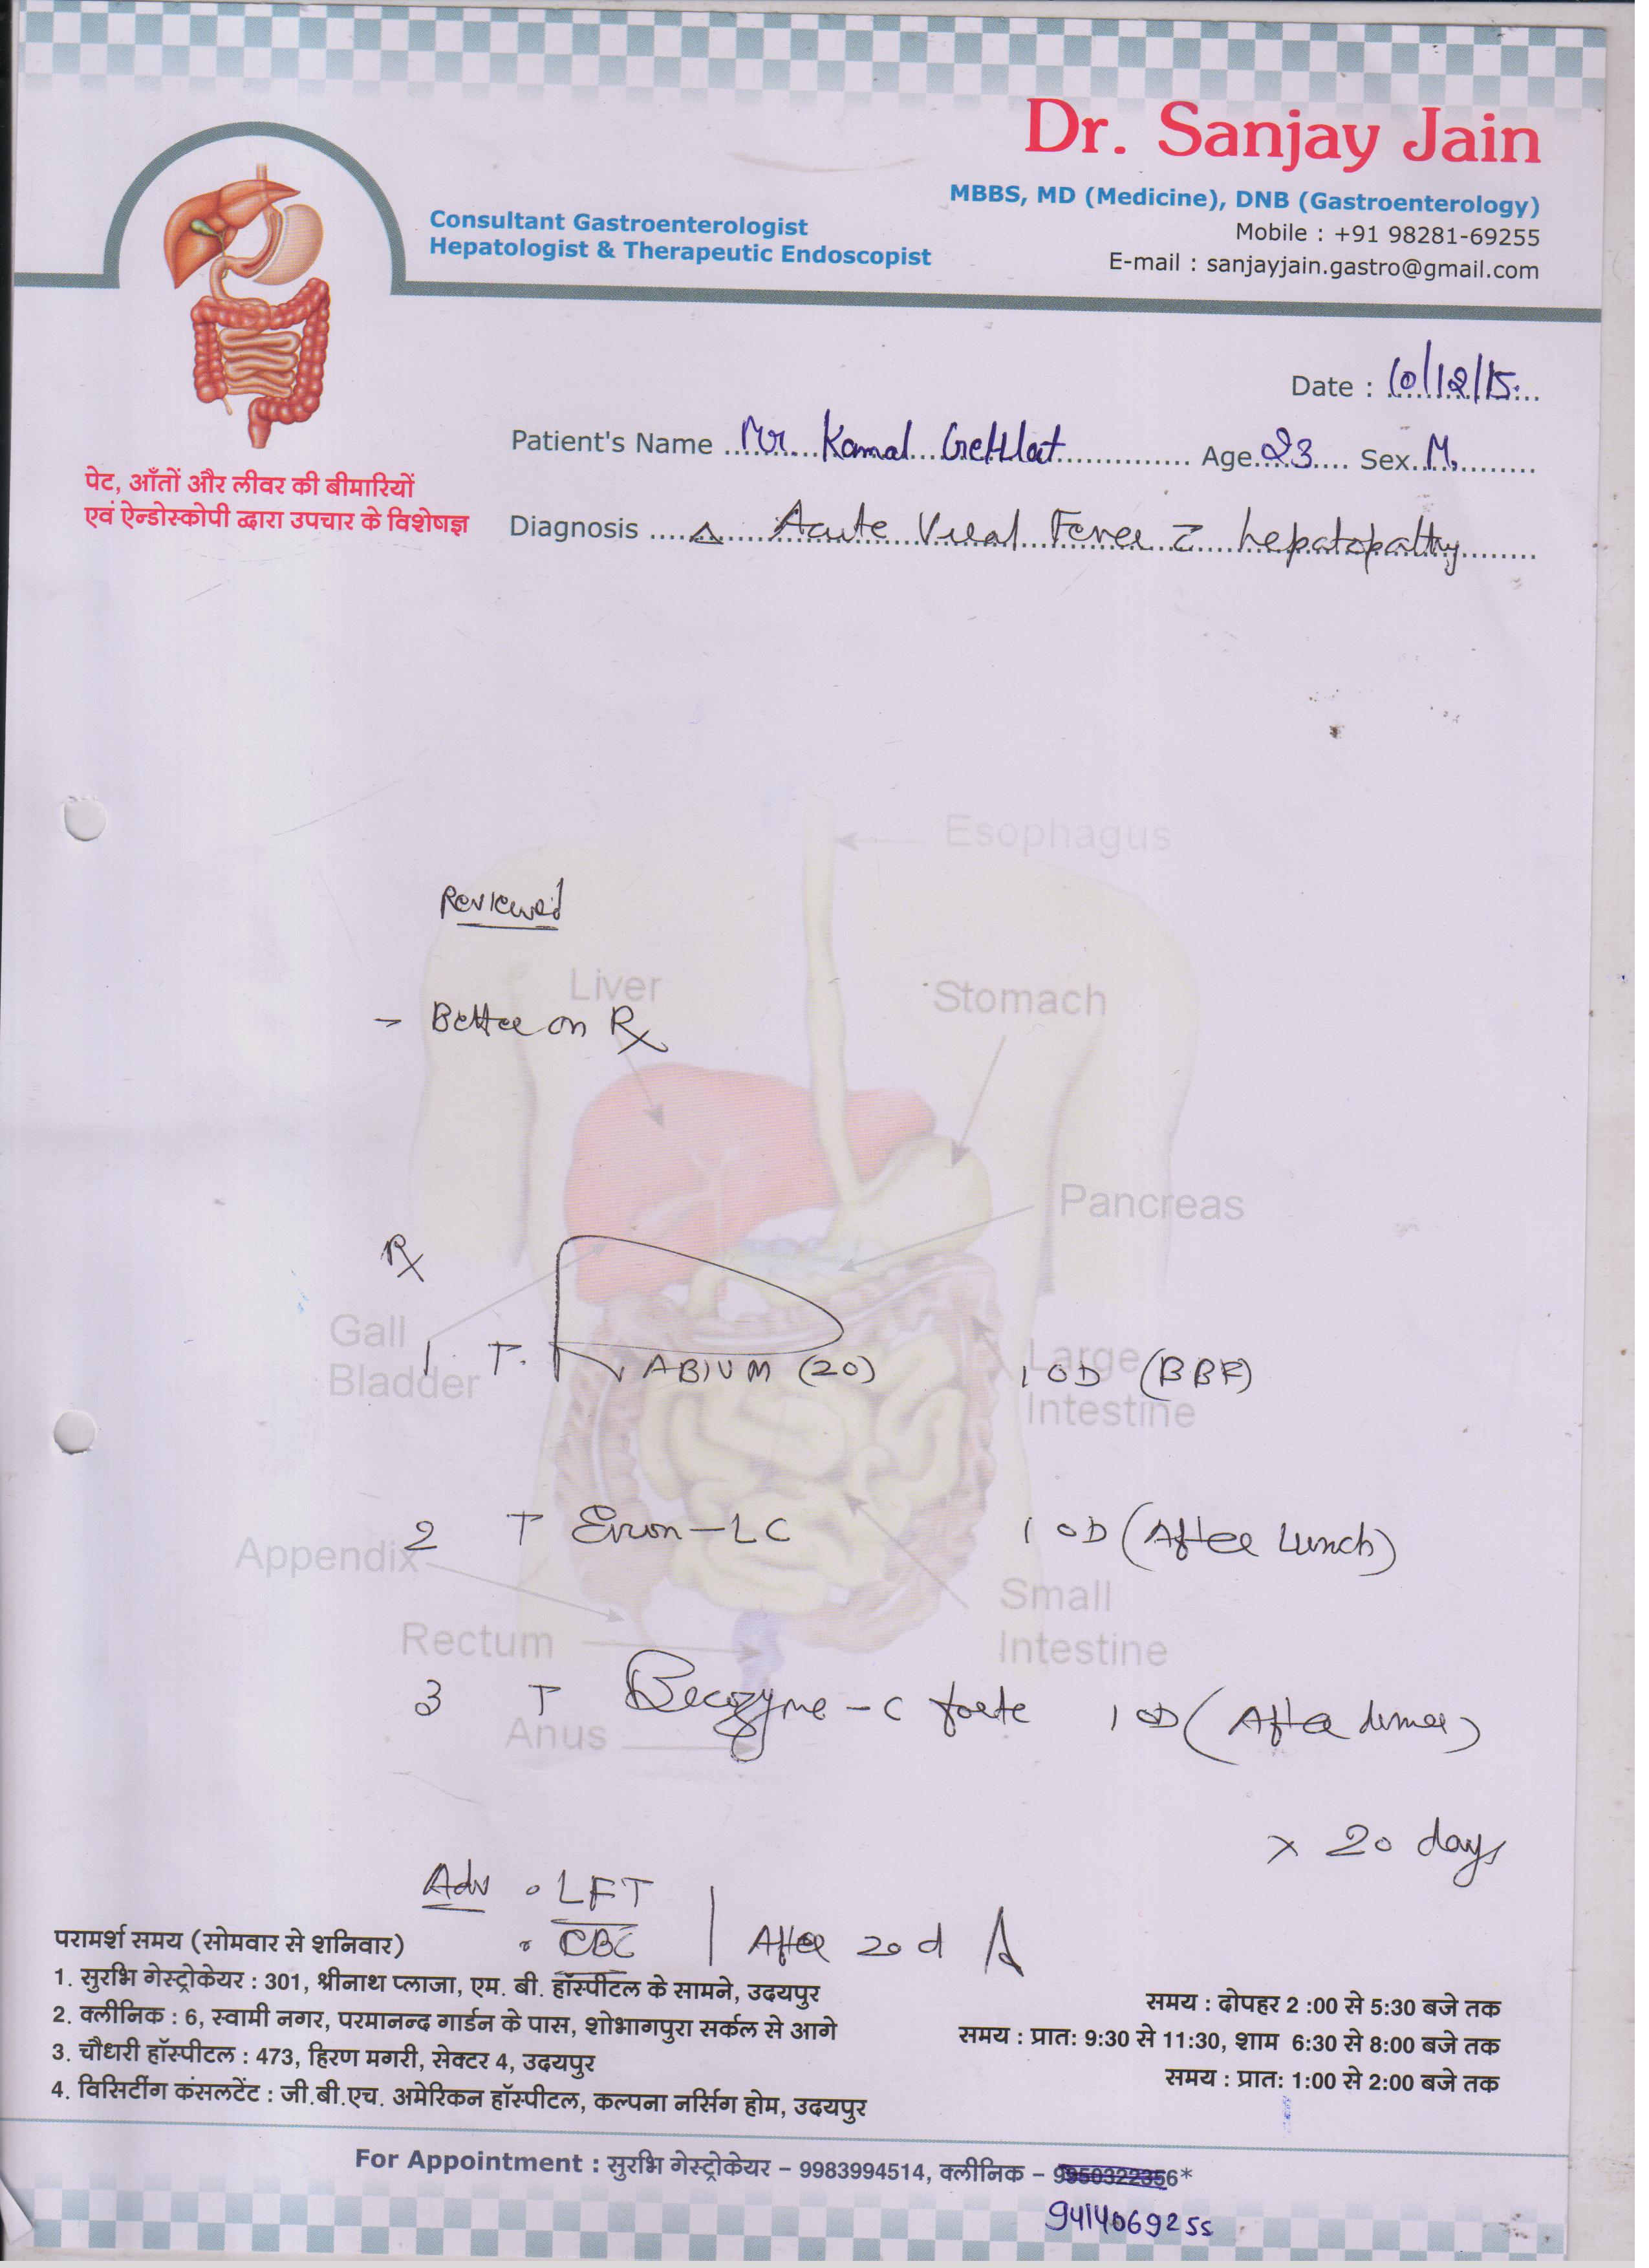 Dr. Sanjay Jain
MBBS, MD (Medicine), DNB (Gastroenterology)
Mobile : +91 98281-69255
E-mail : sanjayjain.gastro@gmail.com
Consultant Gastroenterologist
Hepatologist & Therapeutic Endoscopist
पेट, आँतों और लीवर की बीमारियों
एवं ऐन्डोस्कोपी द्वारा उपचार के विशेषज्ञ
Date : 10/12/15
Patient's Name Mr Kamal Age 23 Sex M.
Diagnosis △ Acute Viral Fever c̄ hepatopathy
Esophagus
Reviewed
Liver
Stomach
- Better on Rx
Pancreas
Rx
Gall
Bladder
Large
Intestine
1. T. ABIUM (20) 1 OD (BBF)
2 T -LC 1 OD (After Lunch)
Appendix
Small
Intestine
Rectum
3 T Becozyme-C forte 1 OD (After dinner)
Anus
x 20 days
Adv • LFT
• CBC | After 20 d
परामर्श समय (सोमवार से शनिवार)
1. सुरभि गेस्ट्रोकेयर : 301, श्रीनाथ प्लाजा, एम. बी. हॉस्पीटल के सामने, उदयपुर समय : दोपहर 2 :00 से 5:30 बजे तक
2. क्लीनिक : 6, स्वामी नगर, परमानन्द गार्डन के पास, शोभागपुरा सर्कल से आगे समय : प्रातः 9:30 से 11:30, शाम 6:30 से 8:00 बजे तक
3. चौधरी हॉस्पीटल : 473, हिरण मगरी, सेक्टर 4, उदयपुर समय : प्रातः 1:00 से 2:00 बजे तक
4. विसिर्टींग कंसलटेंट : जी.बी.एच. अमेरिकन हॉस्पीटल, कल्पना नर्सिग होम, उदयपुर
For Appointment : सुरभि गेस्ट्रोकेयर – 9983994514, क्लीनिक – 9950322356*
9414069255